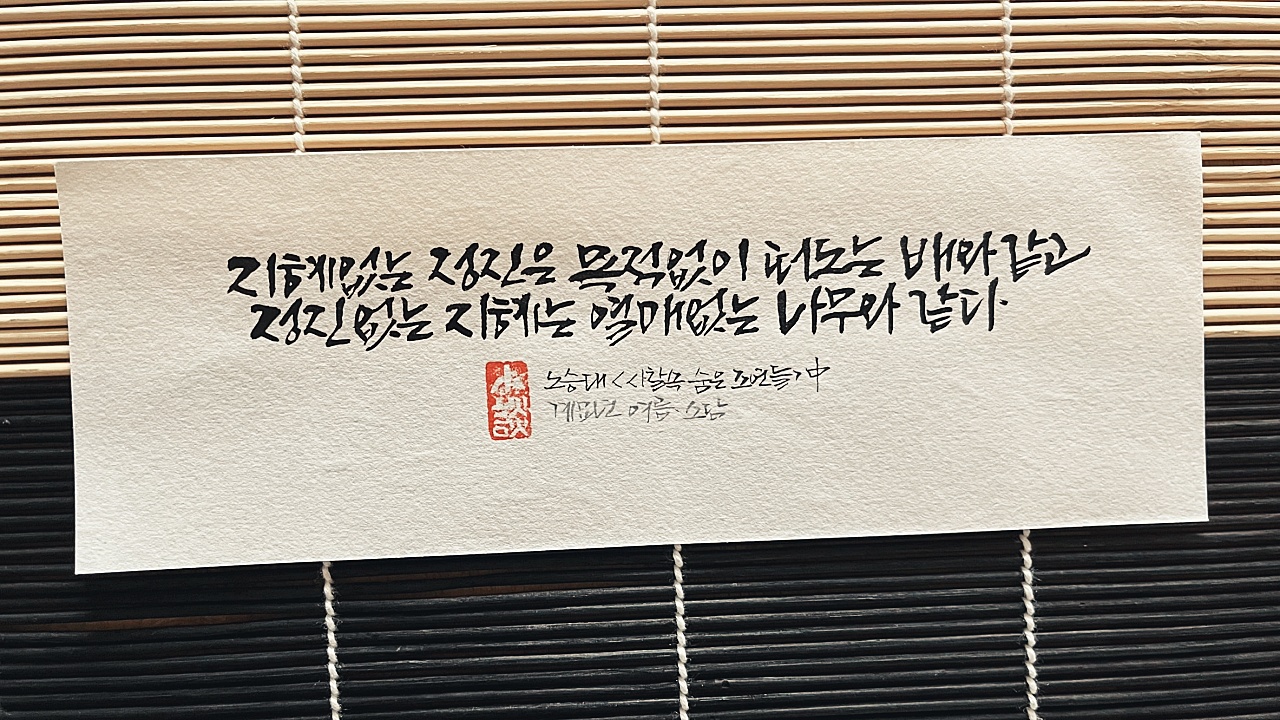 지혜없는 정진은 목적없이 떠도는 배와 같고
정진없는 지혜는 열매없는 나무와 같다.
노승대 <사찰속 숨은 조연들> 中
계묘년 여름. 소담
小談